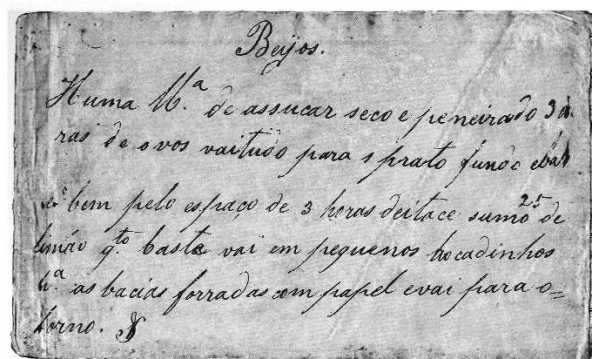 Beijos.
Huma lb.ª de assucar seco e peneirado 3
ras de ovos vai tudo para 1 prato fundo e
bem pelo espaço de 3 horas deitace sumo de
25
limão q.to basta vai em pequenos bocadinhos
as bacias forradas com papel e vai para o=
forno.